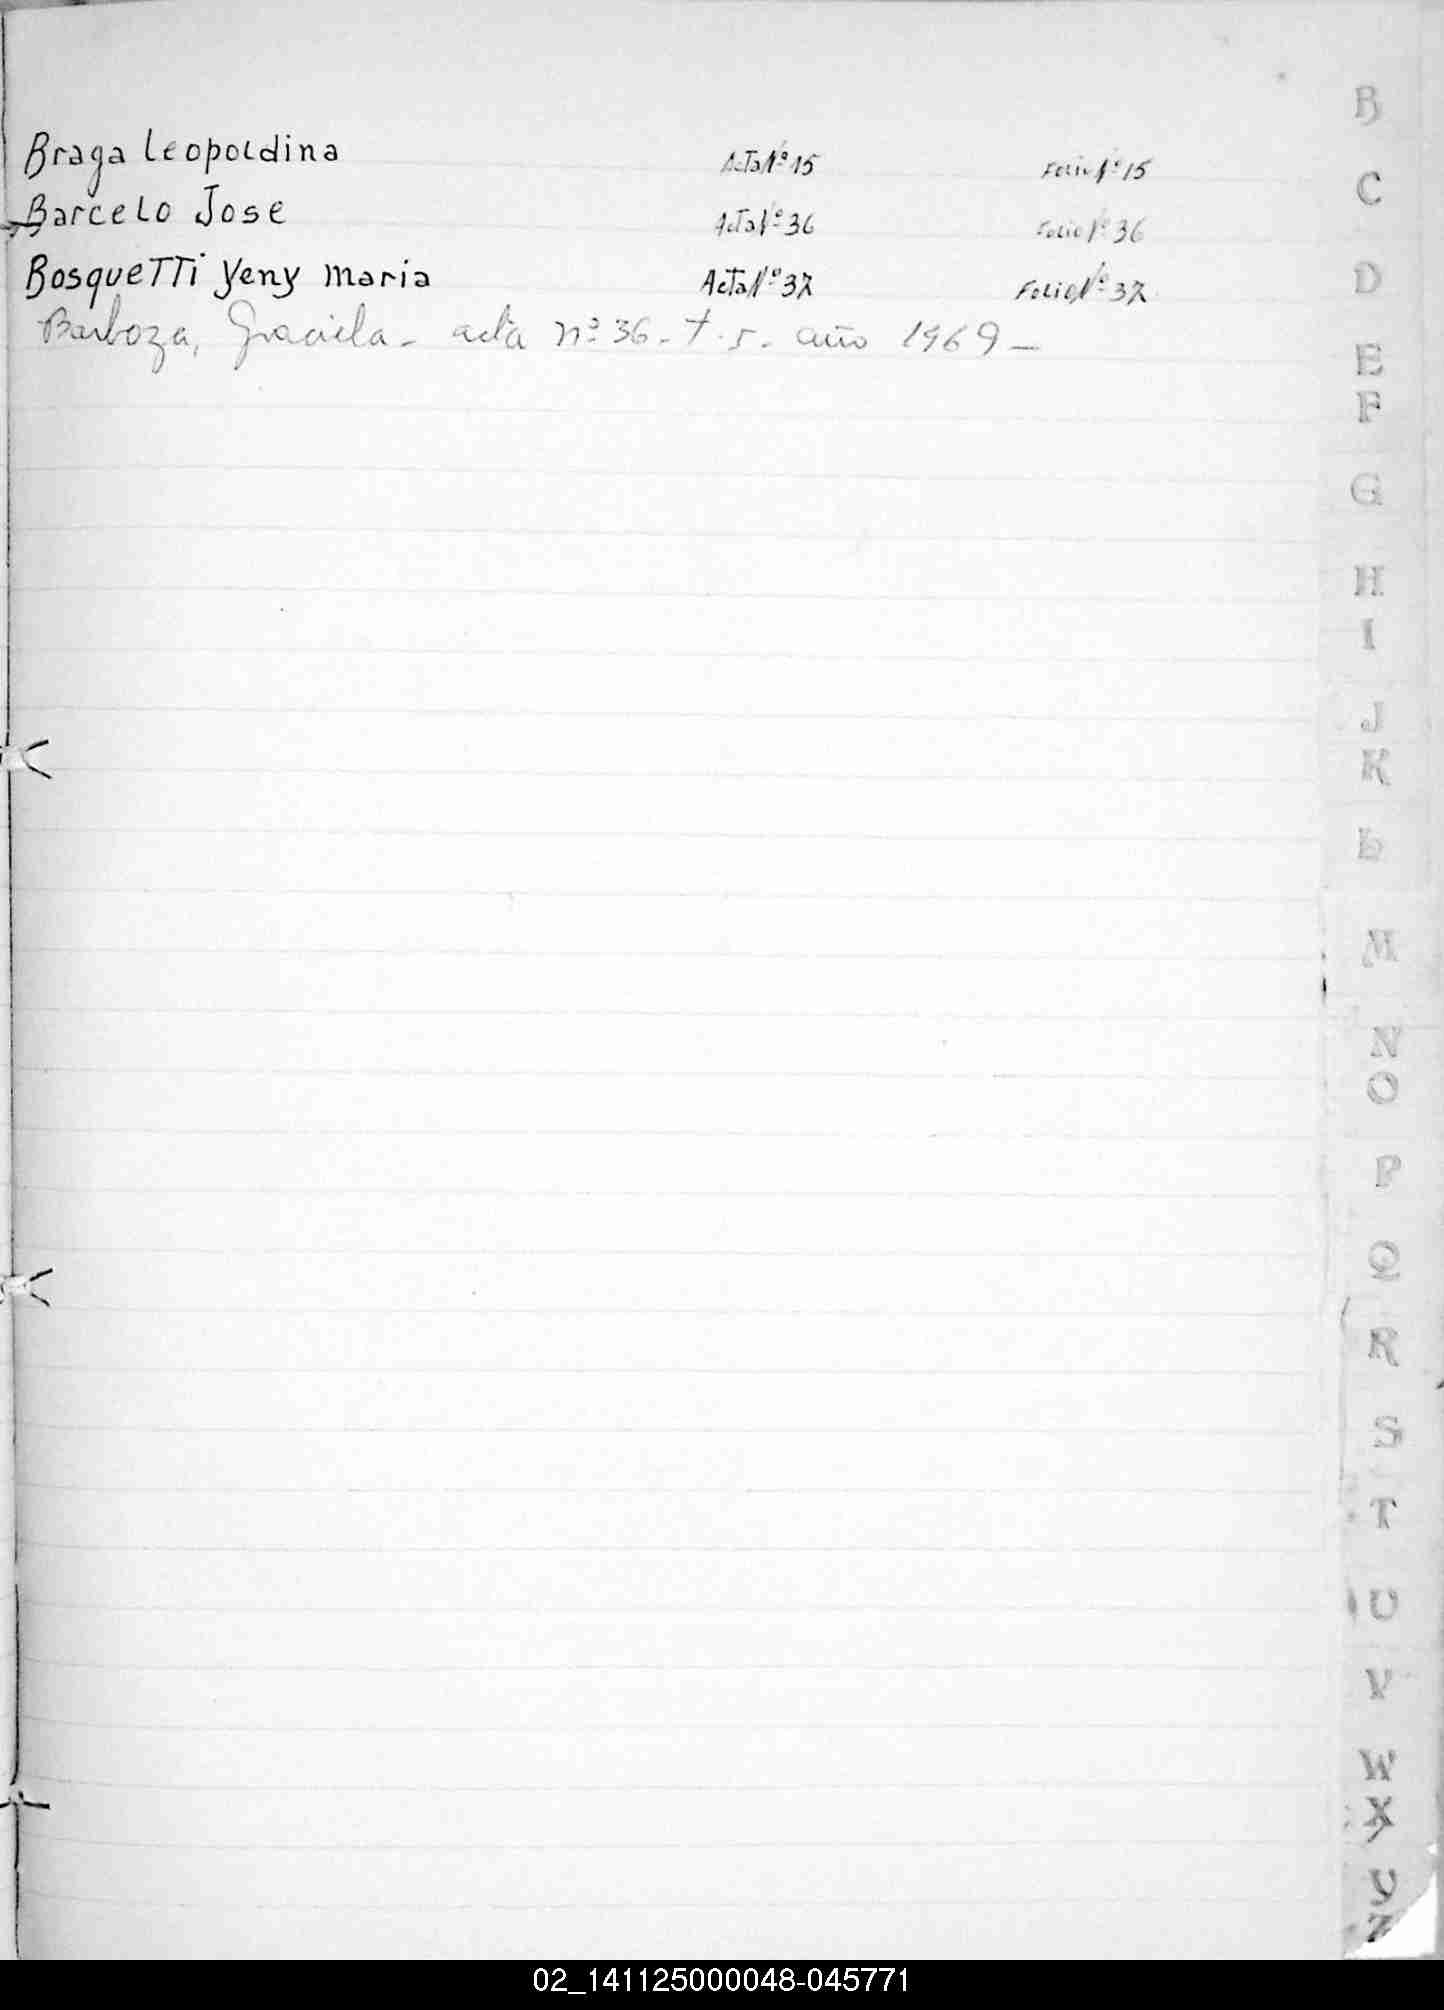 Braga Leopoldina Acta Nº 15 Folio Nº 15
Barcelo Jose Acta Nº 36 Folio Nº 36
BosqueTTi Yeny maria Acta Nº 37 Folio Nº 37
Barboza, Graciela - acta nº 36 - t. 5. año 1969 -
B
C
D
E
F
G
H
I
J
K
L
M
N
O
P
Q
R
S
T
U
V
W
X
Y
Z
02_141125000048-045771